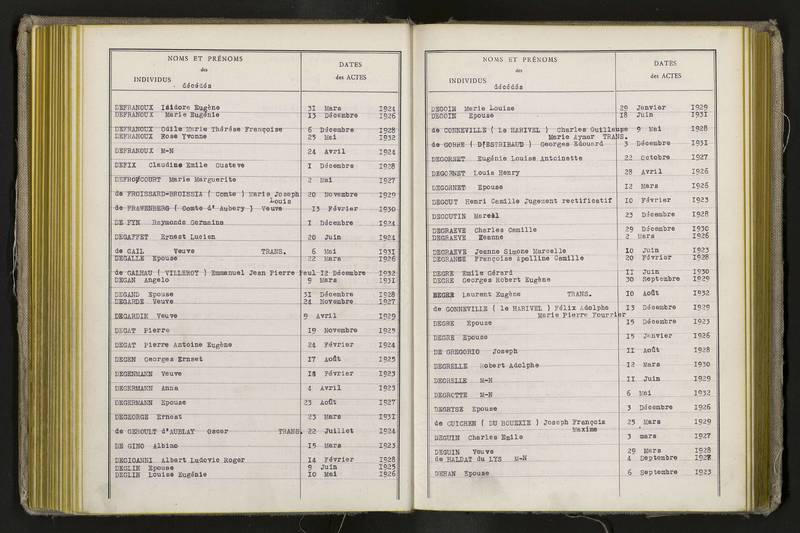 NOMS ET PRÉNOMS
des
INDIVIDUS
décédés
DATES
des ACTES
DEFRANOUX Isidore Eugène 31 Mars 1924
DEFRANOUX Marie Eugénie 13 Décembre 1926
DEFRANOUX Odile Marie Thérèse Françoise 6 Décembre 1928
DEFRANOUX Rose Yvonne 25 Mai 1932
DEFRANOUX M-N 24 Avril 1924
DEFIX Claudine Emile Gustave 1 Décembre 1928
DEFROCOURT Marie Marguerite 2 Mai 1927
de FROISSARD-BROISSIA ( Comte ) Marie Joseph 20 Novembre 1929
Louis
de FRAWENBERG ( Comte d' Aubery ) Veuve 13 Février 1930
DE FYN Raymonde Germaine 1 Décembre 1924
DEGAFFET Ernest Lucien 20 Juin 1924
de GAIL Veuve TRANS. 6 Mai 1931
DEGALLE Epouse 22 Mars 1926
de GALHAU ( VILLEROY ) Emmanuel Jean Pierre Paul 12 Décembre 1932
DEGAN Angelo 9 Mars 1931
DEGAND Epouse 31 Décembre 1928
DEGARDE Veuve 24 Novembre 1927
DEGARDIN Veuve 9 Avril 1929
DEGAT Pierre 19 Novembre 1925
DEGAT Pierre Antoine Eugène 24 Février 1924
DEGEN Georges Ernset 17 Août 1925
DEGENMANN Veuve 18 Février 1923
DEGERMANN Anna 4 Avril 1923
DEGERMANN Epouse 23 Août 1927
DEGEORGE Ernest 23 Mars 1931
de GEROULT d'AUBLAY Oscar TRANS. 22 Juillet 1924
DE GINO Albino 15 Mars 1923
DEGIOANNI Albert Ludovic Roger 14 Février 1928
DEGLIN Epouse 9 Juin 1925
DEGLIN Louise Eugénie 10 Mai 1926
NOMS ET PRÉNOMS
des
INDIVIDUS
décédés
DATES
des ACTES
DEGOIN Marie Louise 29 Janvier 1929
DEGOIN Epouse 18 Juin 1931
de GONNEVILLE ( Le HARIVEL ) Charles Guillaume 9 Mai 1928
Marie Aymar TRANS.
de GORRE ( D'ESTRIBAUD ) Georges Edouard 3 Décembre 1931
DEGORSET Eugénie Louise Antoinette 22 Octobre 1927
DEGORNET Louis Henry 28 Avril 1926
DEGORNET Epouse 12 Mars 1926
DEGOUT Henri Camille Jugement rectificatif 10 Février 1923
DEGOUTIN Marcel 23 Décembre 1928
DEGRAEVE Charles Camille 29 Décembre 1930
DEGRAEVE Jeanne 2 Mars 1926
DEGRAEVE Jeanne Simone Marcelle 10 Juin 1923
DEGRANGE Françoise Apolline Camille 20 Février 1928
DEGRE Emile Gérard 11 Juin 1930
DEGRE Georges Robert Eugène 30 Septembre 1929
DEGRE Laurent Eugène TRANS. 10 Août 1932
de GONNEVILLE ( le HARIVEL ) Félix Adolphe 13 Décembre 1929
Marie Pierre Fourrier
DEGRE Epouse 15 Décembre 1923
DEGRE Epouse 15 Janvier 1926
DE GREGORIO Joseph 11 Août 1928
DEGRELLE Robert Adolphe 12 Mars 1930
DEGRELLE M-N 11 Juin 1929
DEGROTTE M-N 6 Mai 1932
DEGRYSE Epouse 3 Décembre 1926
de GUICHEN ( DU BOUEXIE ) Joseph François 25 Mars 1929
Maxime
DEGUIN Charles Emile 3 mars 1927
DEGUIN Veuve 29 Mars 1928
de HALDAT du LYS M-N 4 Septembre
DEHAN Epouse 6 Septembre 1923